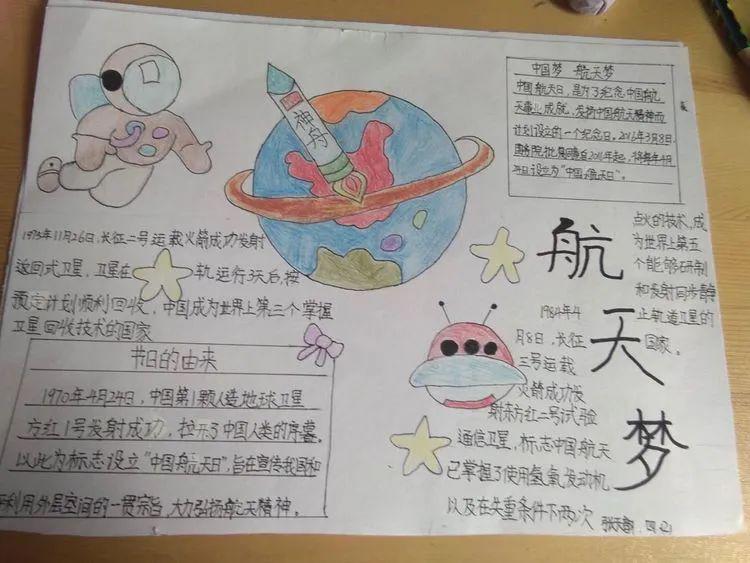 中国梦 航天梦
中国航天日,是为了纪念中国航
天事业成就,发扬中国航天精神而
计划设立的一个纪念日。2016年3月8日,
国务院批复同意自2016年起,将每年4月
24日设立为"中国航天日"。
神舟
1975年11月26日,长征二号运载火箭成功发射
返回式卫星,卫星在 轨运行3天后,按
预定计划顺利回收,中国成为世界上第三个掌握
卫星回收技术的国家
节日的由来
1970年4月24日,中国第1颗人造地球卫星
方红1号发射成功,拉开了中国人类的序幕。
以此为标志设立"中国航天日",旨在宣传我国和
平利用外层空间的一贯宗旨,大力弘扬航天精神。
航天梦
1984年4
月8日,长征
三号运载
火箭成功发
射东方红二号试验
通信卫星,标志中国航天
已掌握了使用氢氧发动机
以及在失重条件下两次
点火的技术,成
为世界上第五
个能够研制
和发射同步静
止轨道卫星的
国家。